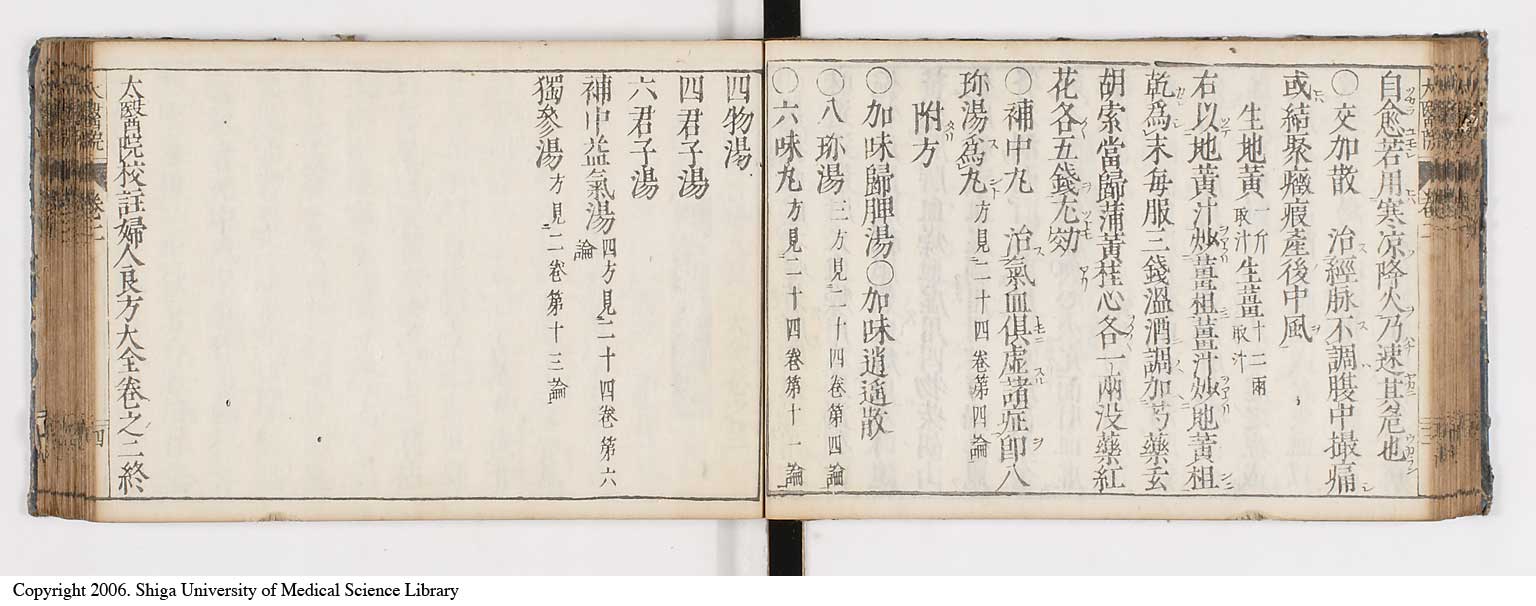 自愈若用寒凉降火乃速其危也
〇交加散 治經脉不調腹中撮痛
或結聚癥瘕產後中風
生地黃一斤取汁 生薑十二兩取汁
右以地黃汁炒薑柤薑汁炒地黃柤
乾爲末每服三錢溫酒調加芍藥玄
胡索當歸蒲黃桂心各一兩没藥紅
花各五錢尤効
〇補中丸 治氣血俱虛諸症即八
珎湯爲丸方見二十四卷第四論
附方
〇加味歸脾湯〇加味逍遥散
〇八珎湯三方見二十四卷第四論
〇六味丸方見二十四卷第十一論
四物湯
四君子湯
六君子湯
補中益氣湯四方見二十四卷第六論
獨參湯方見二卷第十三論
太醫院校註婦人良方大全卷之二終
Copyright 2006. Shiga University of Medical Science Library